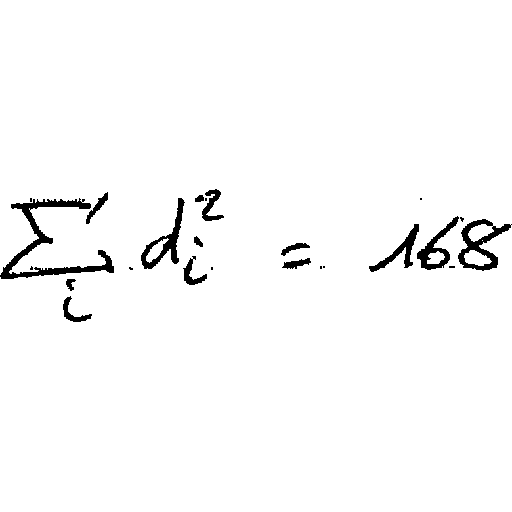 \sum_{i} d_{i}^{2} = 168